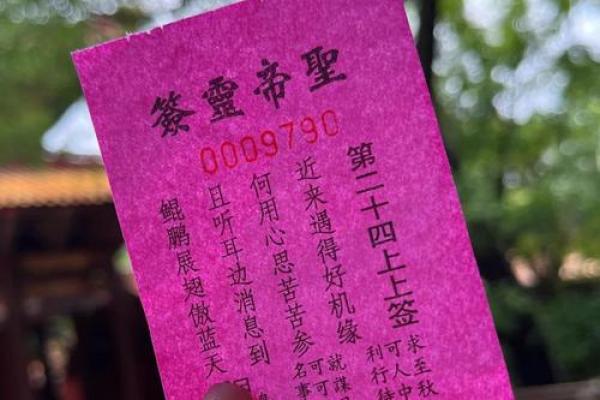 聖帝靈簽
0009790
第二十四上上签
近来遇得好机缘
何用心思苦苦参
且听耳边消息到
鲲鹏展翅傲蓝天
求至秋
可人中
利行待
就謀
可可
名事